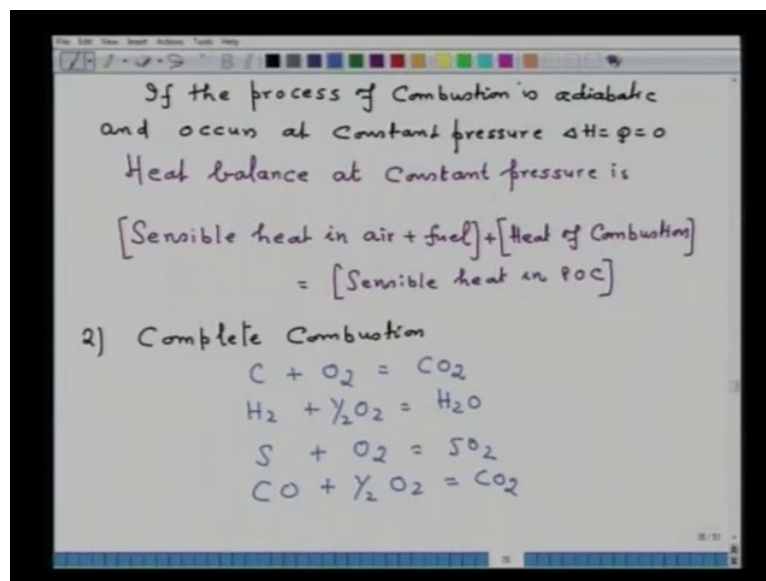 File Edit View Insert Actions Tools Help
If the process of Combustion is adiabatic
and occurs at Constant pressure ΔH= Q=0
Heat balance at Constant pressure is
[Sensible heat in air + fuel]+[Heat of Combustion]
= [Sensible heat in POC]
2) Complete Combustion
C + O2 = CO2
H2 + 1/2 O2 = H2O
S + O2 = SO2
CO + 1/2 O2 = CO2